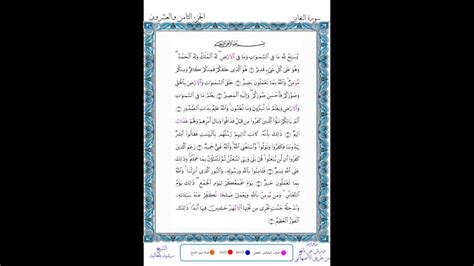 سورة التغابن
الجزء الثامن والعشرون
بسم الله الرحمن الرحيم
يُسَبِّحُ لِلَّهِ مَا فِي السَّمَٰوَاتِ وَمَا فِي الْأَرْضِ لَهُ الْمُلْكُ وَلَهُ الْحَمْدُ
وَهُوَ عَلَىٰ كُلِّ شَيْءٍ قَدِيرٌ هُوَ الَّذِي خَلَقَكُمْ فَمِنكُمْ كَافِرٌ وَمِنكُم
مُّومِنٌ وَاللَّهُ بِمَا تَعْمَلُونَ بَصِيرٌ خَلَقَ السَّمَٰوَاتِ وَالْأَرْضَ بِالْحَقِّ
وَصَوَّرَكُمْ فَأَحْسَنَ صُوَرَكُمْ وَإِلَيْهِ الْمَصِيرُ يَعْلَمُ مَا فِي السَّمَٰوَاتِ
وَالْأَرْضِ وَيَعْلَمُ مَا تُسِرُّونَ وَمَا تُعْلِنُونَ وَاللَّهُ عَلِيمٌ بِذَاتِ الصُّدُورِ
أَلَمْ يَاتِكُمْ نَبَؤُا الَّذِينَ كَفَرُوا مِن قَبْلُ فَذَاقُوا وَبَالَ أَمْرِهِمْ وَلَهُمْ عَذَابٌ
أَلِيمٌ ذَٰلِكَ بِأَنَّهُ كَانَت تَّاتِيهِمْ رُسُلُهُم بِالْبَيِّنَاتِ فَقَالُوا أَبَشَرٌ
يَهْدُونَنَا فَكَفَرُوا وَتَوَلَّوا وَّاسْتَغْنَى اللَّهُ وَاللَّهُ غَنِيٌّ حَمِيدٌ زَعَمَ الَّذِينَ
كَفَرُوا أَن لَّن يُبْعَثُوا قُلْ بَلَىٰ وَرَبِّي لَتُبْعَثُنَّ ثُمَّ لَتُنَبَّؤُنَّ بِمَا عَمِلْتُمْ وَذَٰلِكَ
عَلَى اللَّهِ يَسِيرٌ فَآمِنُوا بِاللَّهِ وَرَسُولِهِ وَالنُّورِ الَّذِي أَنزَلْنَا وَاللَّهُ
بِمَا تَعْمَلُونَ خَبِيرٌ يَوْمَ يَجْمَعُكُمْ لِيَوْمِ الْجَمْعِ ذَٰلِكَ يَوْمُ
التَّغَابُنِ وَمَن يُومِن بِاللَّهِ وَيَعْمَلْ صَالِحًا نُّكَفِّرْ عَنْهُ سَيِّئَاتِهِ
وَنُدْخِلْهُ جَنَّاتٍ تَجْرِي مِن تَحْتِهَا الْأَنْهَارُ خَالِدِينَ فِيهَا أَبَدًا ذَٰلِكَ
الْفَوْزُ الْعَظِيمُ